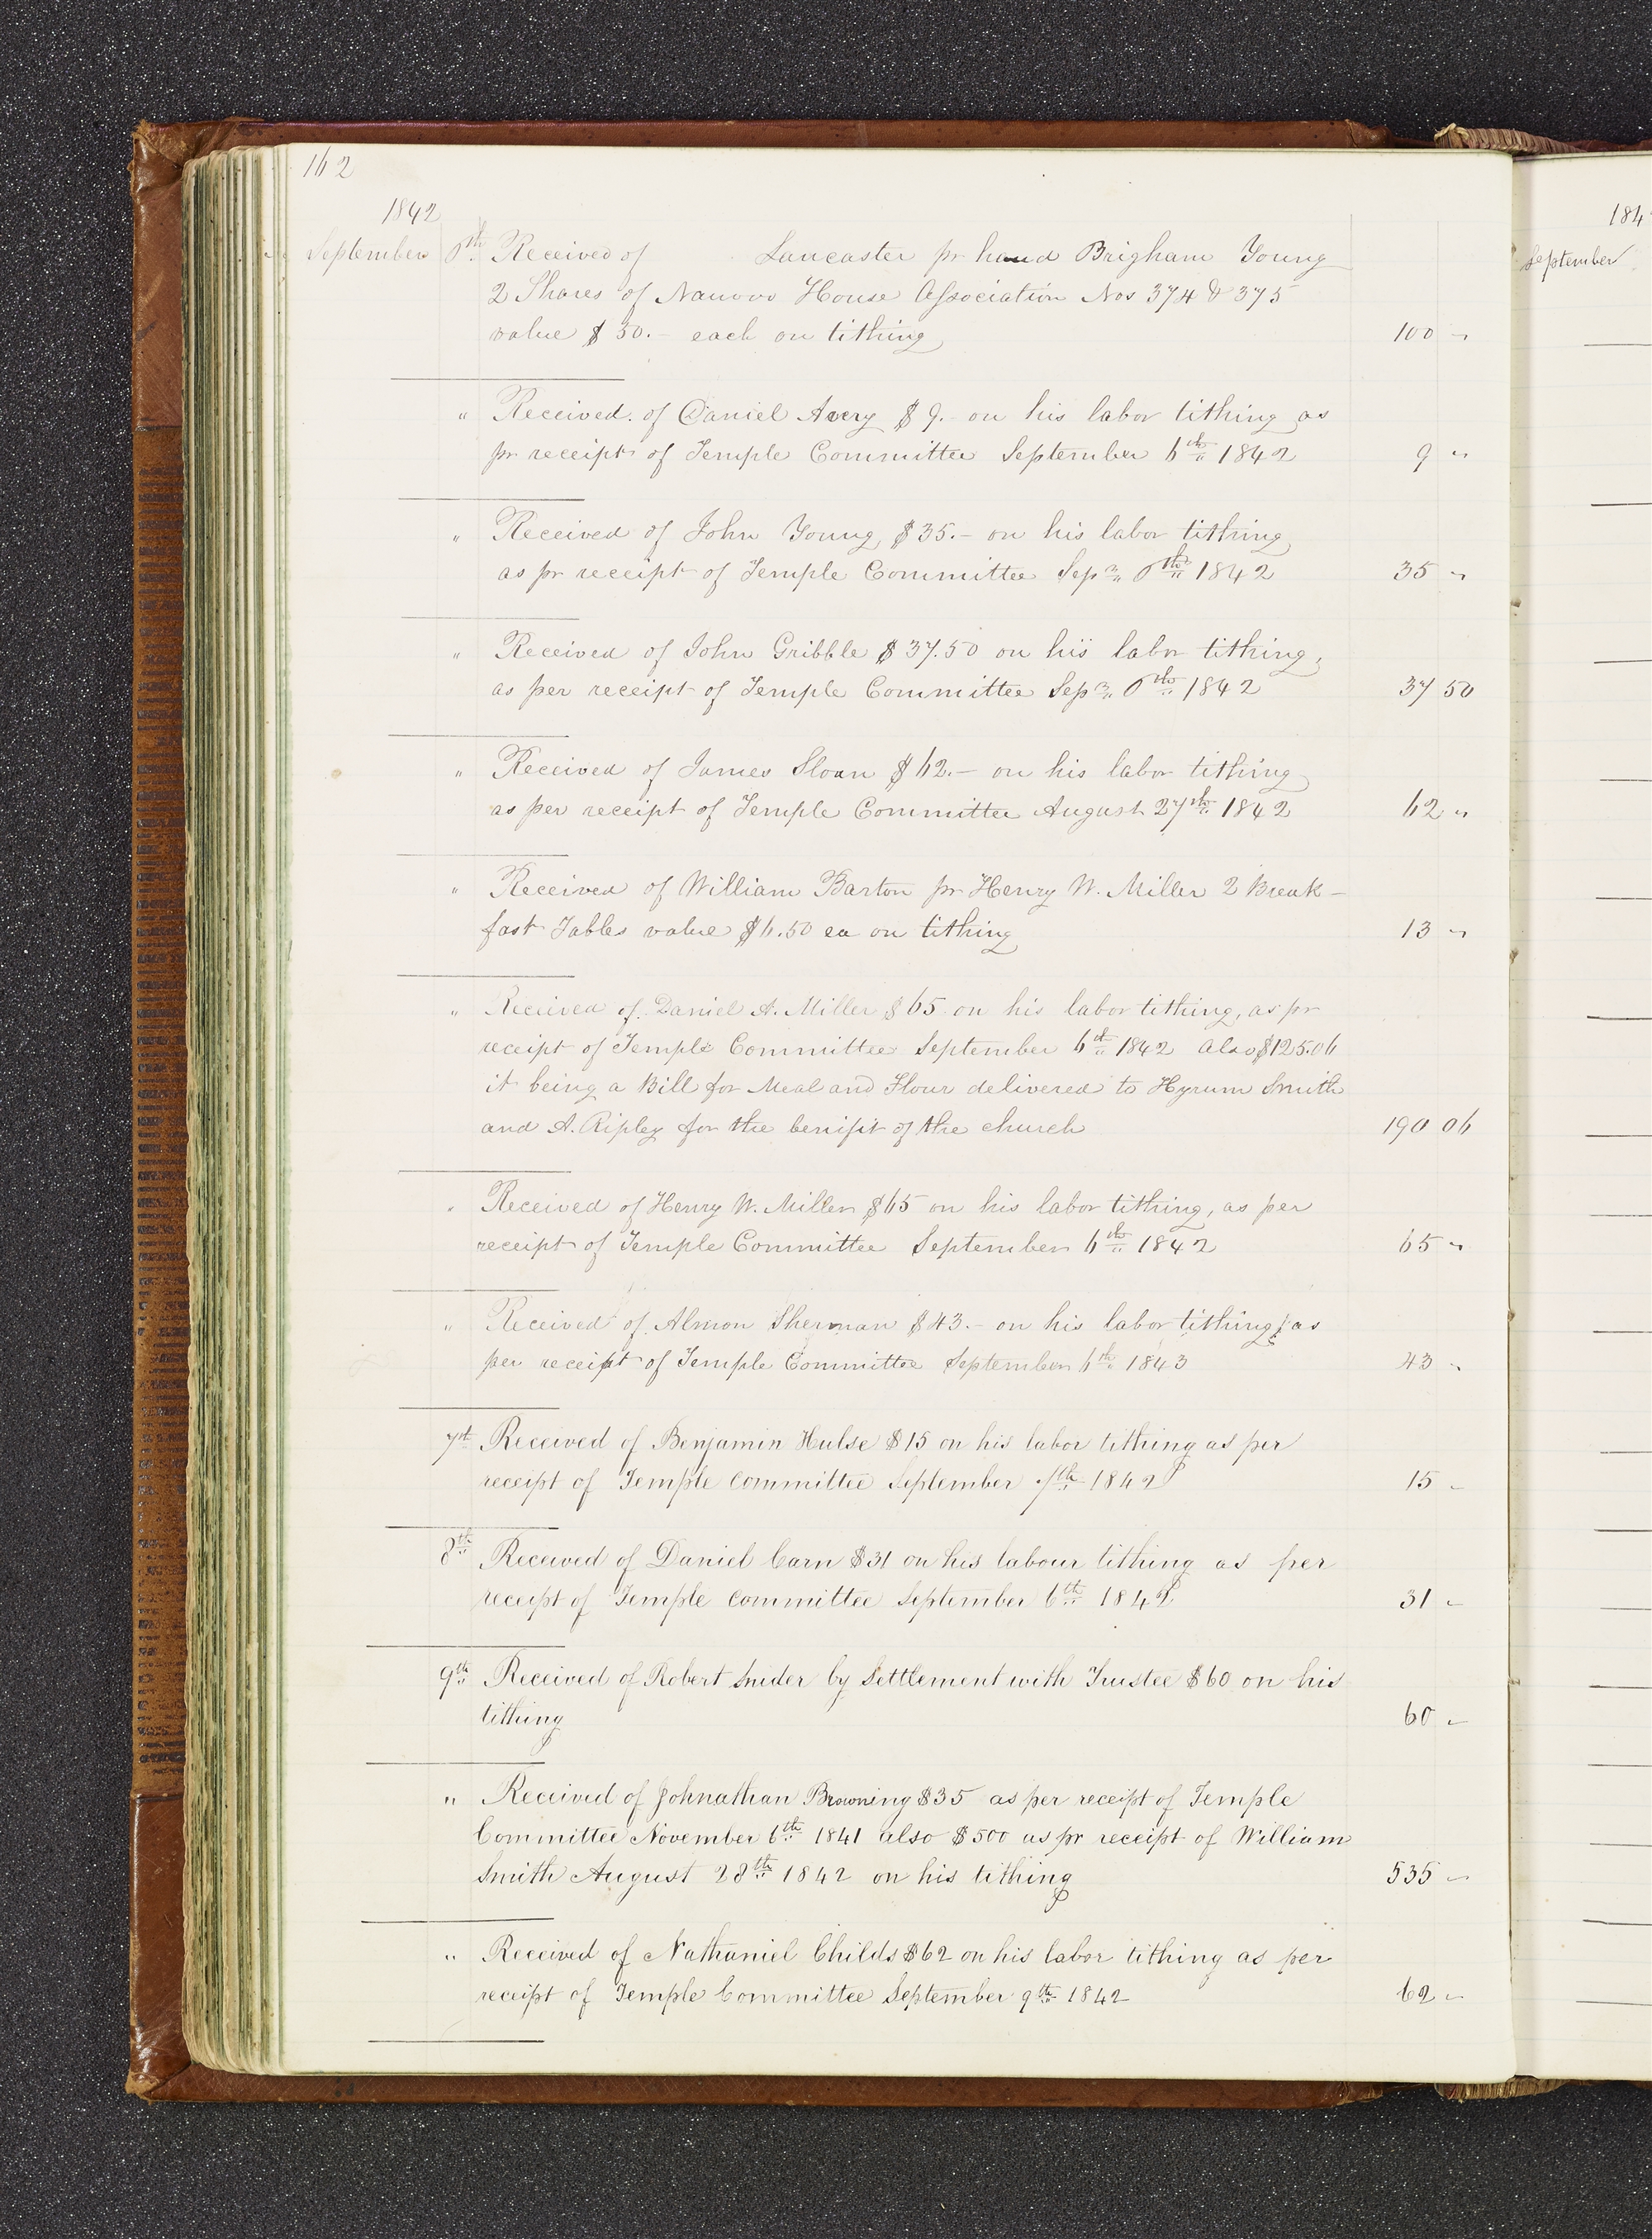 162
1842
September 6th Received of Lancaster pr hand Brigham Young
2 Shares of Nauvoo House Association Nos 374 & 375
value $50.- each on tithing 100 "
" Received of Daniel Avery $9.- on his labor tithing as
pr receipt of Temple Committee September 6th 1842 9 "
" Received of John Young $35.- on his labor tithing
as pr receipt of Temple Committee Sepr 6th 1842 35 "
" Received of John Gribble $37.50 on his labor tithing,
as per receipt of Temple Committee Sepr 6th 1842 37 50
" Received of James Sloan $62.- on his labor tithing
as per receipt of Temple Committee August 27th 1842 62 "
" Received of William Barton pr Henry W. Miller 2 Break-
fast Tables value $6.50 ea on tithing 13 "
" Received of Daniel A. Miller $65 on his labor tithing, as pr
receipt of Temple Committee September 6th 1842 also $125.06
it being a Bill for Meal and Flour delivered to Hyrum Smith
and A. Ripley for the benifit of the church 190 06
" Received of Henry W. Miller $65 on his labor tithing, as per
receipt of Temple Committee September 6th 1842 65 "
" Received of Almon Sherman $43.- on his labor tithing, as
per receipt of Temple Committee September 6th 1843 43 "
7th Received of Benjamin Hulse $15 on his labor tithing as per
receipt of Temple committee September 7th 1842 15 -
8th Received of Daniel Carn $31 on his labour tithing as per
receipt of Temple committee September 6th 1842 31 -
9th Received of Robert Snider by Settlement with Trustee $60 on his
tithing 60 -
" Received of Johnathan Browning $35 as per receipt of Temple
Committee November 6th 1841 also $500 as pr receipt of William
Smith August 28th 1842 on his tithing 535 -
" Received of Nathaniel Childs $62 on his labor tithing as per
receipt of Temple Committee September 9th 1842 62 -
184
September